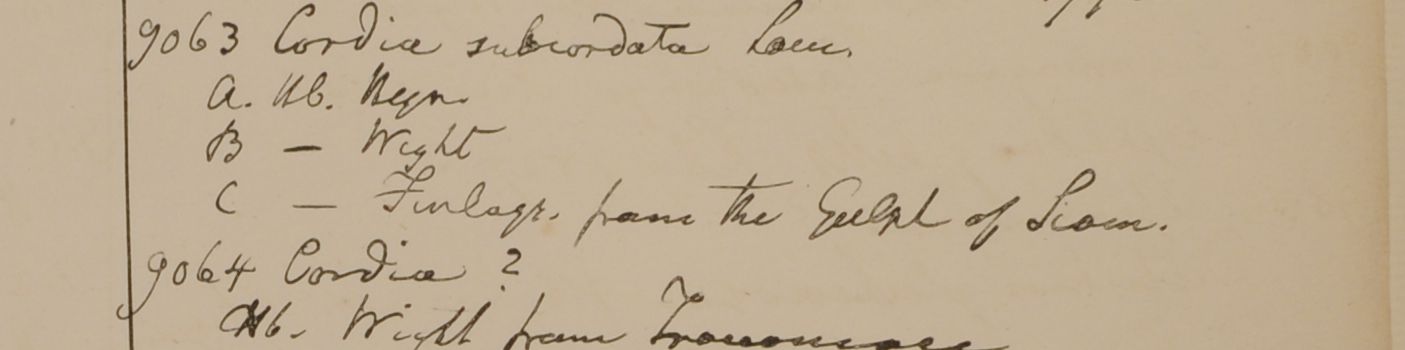 9063 Cordia subcordata Lam.
A. Hb. Heyn.
B — Wight
C — Finlays. from the Gulph of Siam.
9064 Cordia ?
Hb. Wight from